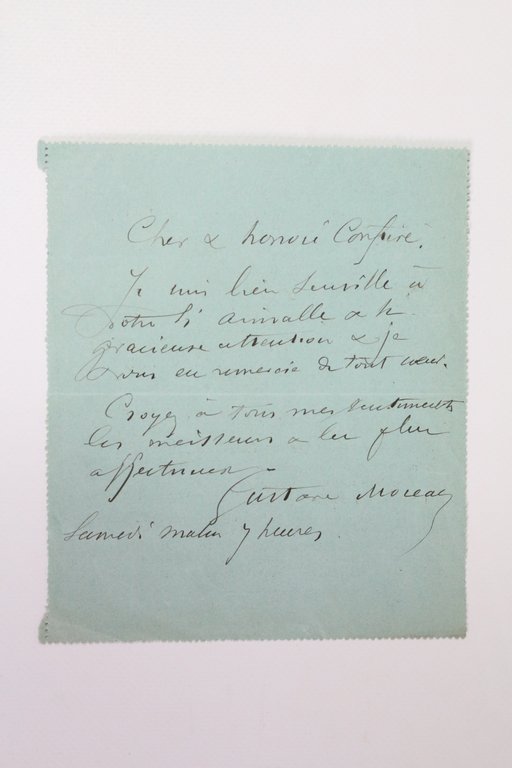 Cher & honoré Confrère,
Je suis bien sensible à
votre si aimable & si
gracieuse attention & je
vous en remercie de tout cœur.
Croyez à tous mes sentiments
les meilleurs & les plus
affectueux
Gustave Moreau
Samedi matin 7 heures.